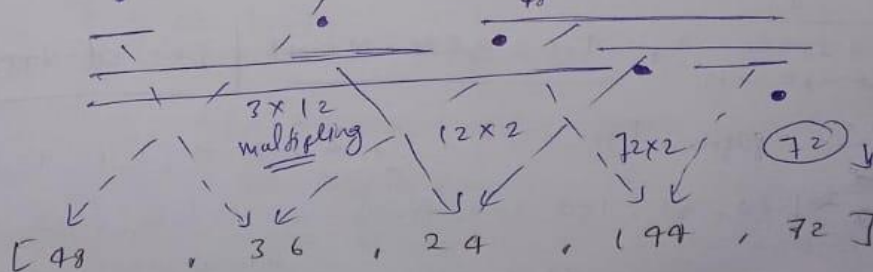 48
3 x 12
multipling
12 x 2
72 x 2
72
[ 48 , 36 , 24 , 144 , 72 ]